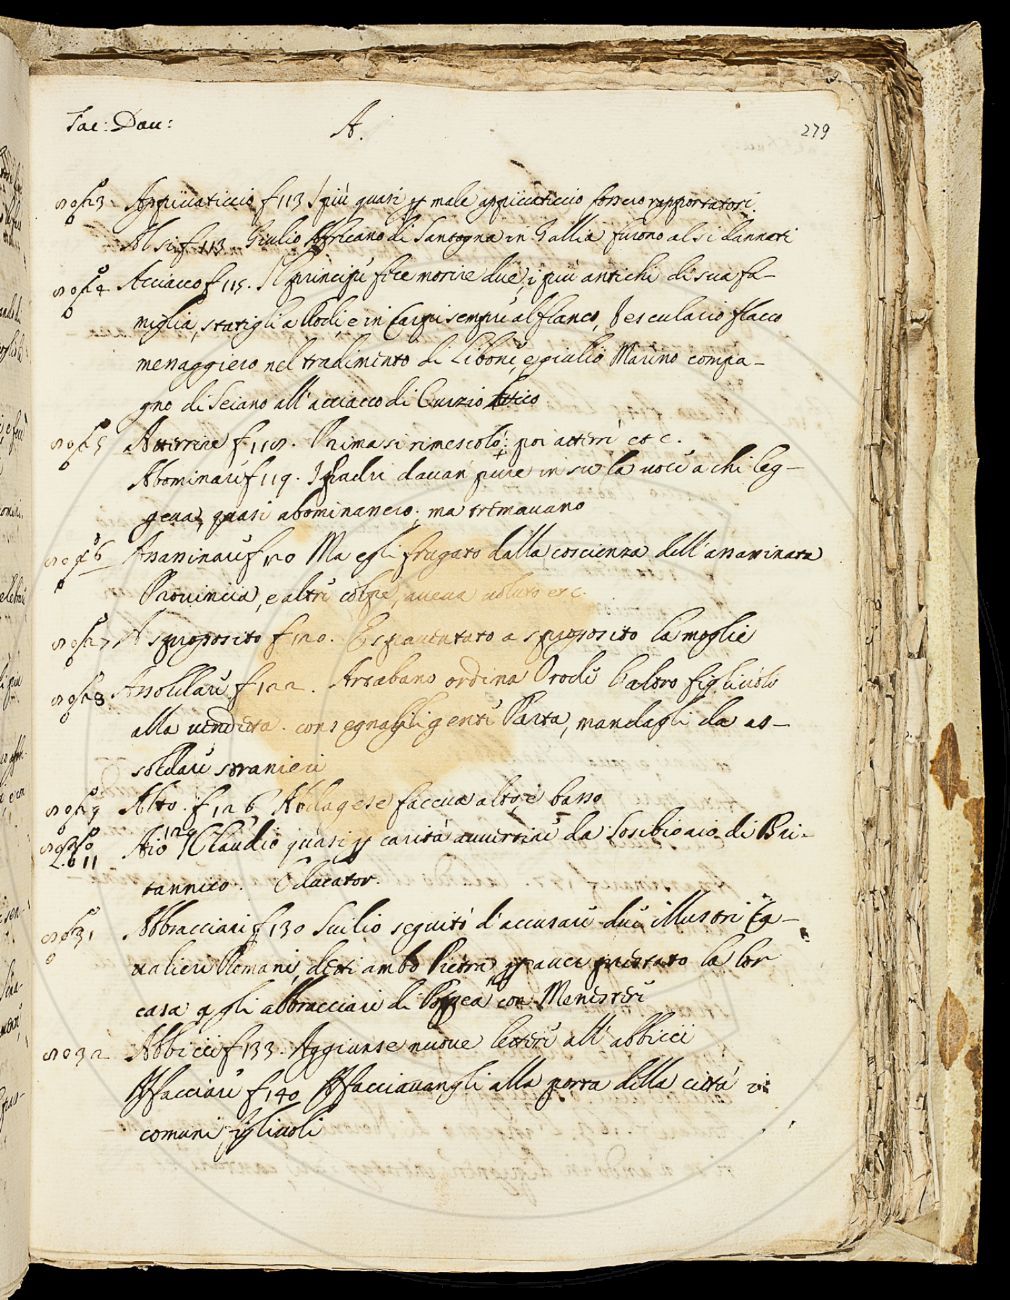 Tac: Dau:
A.
279
Appiccaticcio f 113 I più quasi p male appiccaticcio furono rapportatori
Al si f 113. Giulio Affricano di Santogna in Gallia furono al si dannati
Acciacco f 115. Il principe fece morire due i più antichi di sua fa-
miglia, statigli a Rodi, e in Capri sempre al fianco, Vesculario flacco
messaggiero nel tradimento di Libone, e giulio Marino compa-
gno di Seiano all'acciacco di Curzio Attico
Atterrire f 118. Prima si rimescolò; poi atterrì etc.
Abominare f 119. I padri davan pure in su la voce a chi leg-
geva, quasi abominando; ma tremavano
Assassinare f 120 Ma egli frugato dalla coscienza dell'assassinata
Provincia, e altre colpe, aveva
A sproposito f 120. E spaventato a sproposito la moglie
Assoldare f 122. Artabano ordina Orode l'altro figliuolo
alla vendetta. consegnagli genti Parta, mandagli da as-
soldare stranieri
Alto. f 126 Vologese faceva alto, e basso
Aio 129 Claudio quasi p carità avvertire da Sosibio aio di Bri-
tannico. Educator.
Abbracciari f 130 Suilio seguitò d'accusare due illustri Ca-
valieri Romani, detti ambo Pietra, p aver prestato la lor
casa p gli abbracciari di Poppea con Menestere
Abbicci f 133. Aggiunse nuove lettere all'abbicci
Affacciare f 140 Affacciavangli alla porta della città i
comuni figliuoli